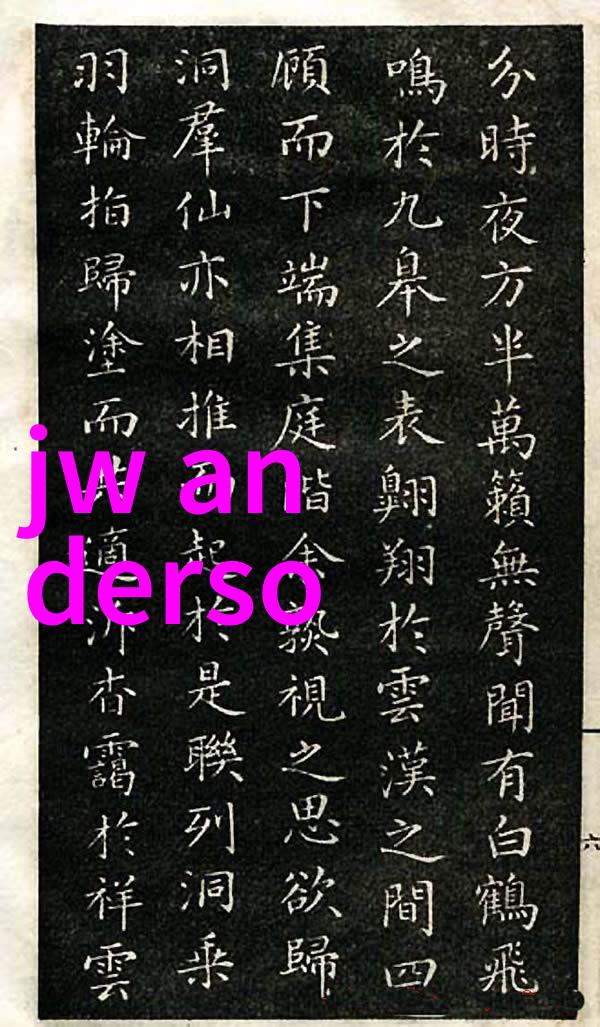 分時夜方半萬籟無聲聞有白鶴飛
鳴於九皋之表翺翔於雲漢之間四
顧而下端集庭階余熟視之思欲歸
洞羣仙亦相推而起於是聯列洞乘
羽輪指歸塗而共適泝杳靄於祥雲
六
jw an
derso